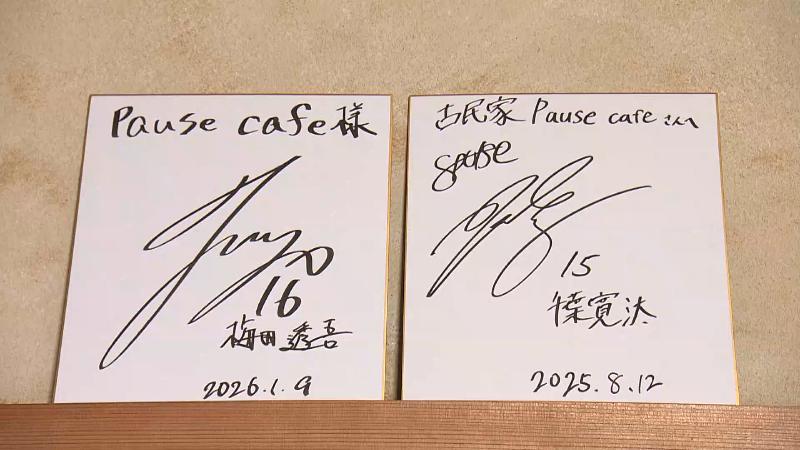 Pause cafe様
16
梅田透吾
2026.1.9
古民家 Pause cafe さんへ
spulse
15
千葉寛汰
2025.8.12